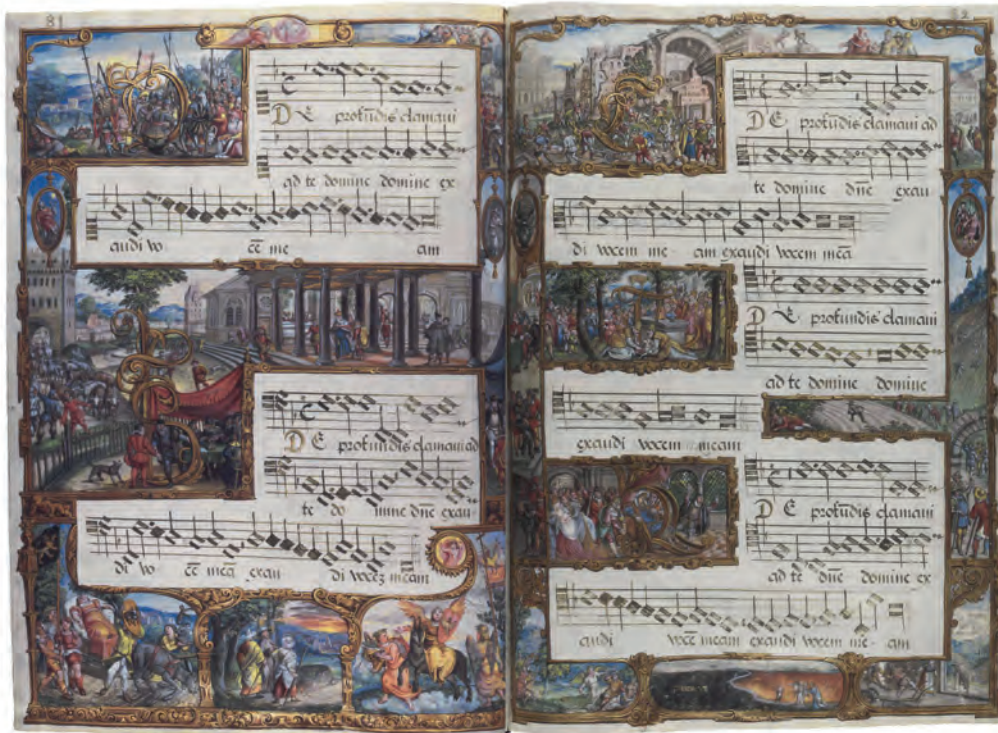 81
DE profundis clamaui
ad te domine domine ex
audi vo cē me am
DE profundis clamaui ad
te do mine dn̄e exau
di vo cē meā exau di vocez meam
82
DE profudis clamaui ad
te domine dn̄e exau
di vocem me am exaudi vocem meā
DE profundis clamaui
ad te domine domine
exaudi vocem meam
DE profūdis clamaui
ad te dn̄e domine ex
audi vocē meam exaudi vocem me am